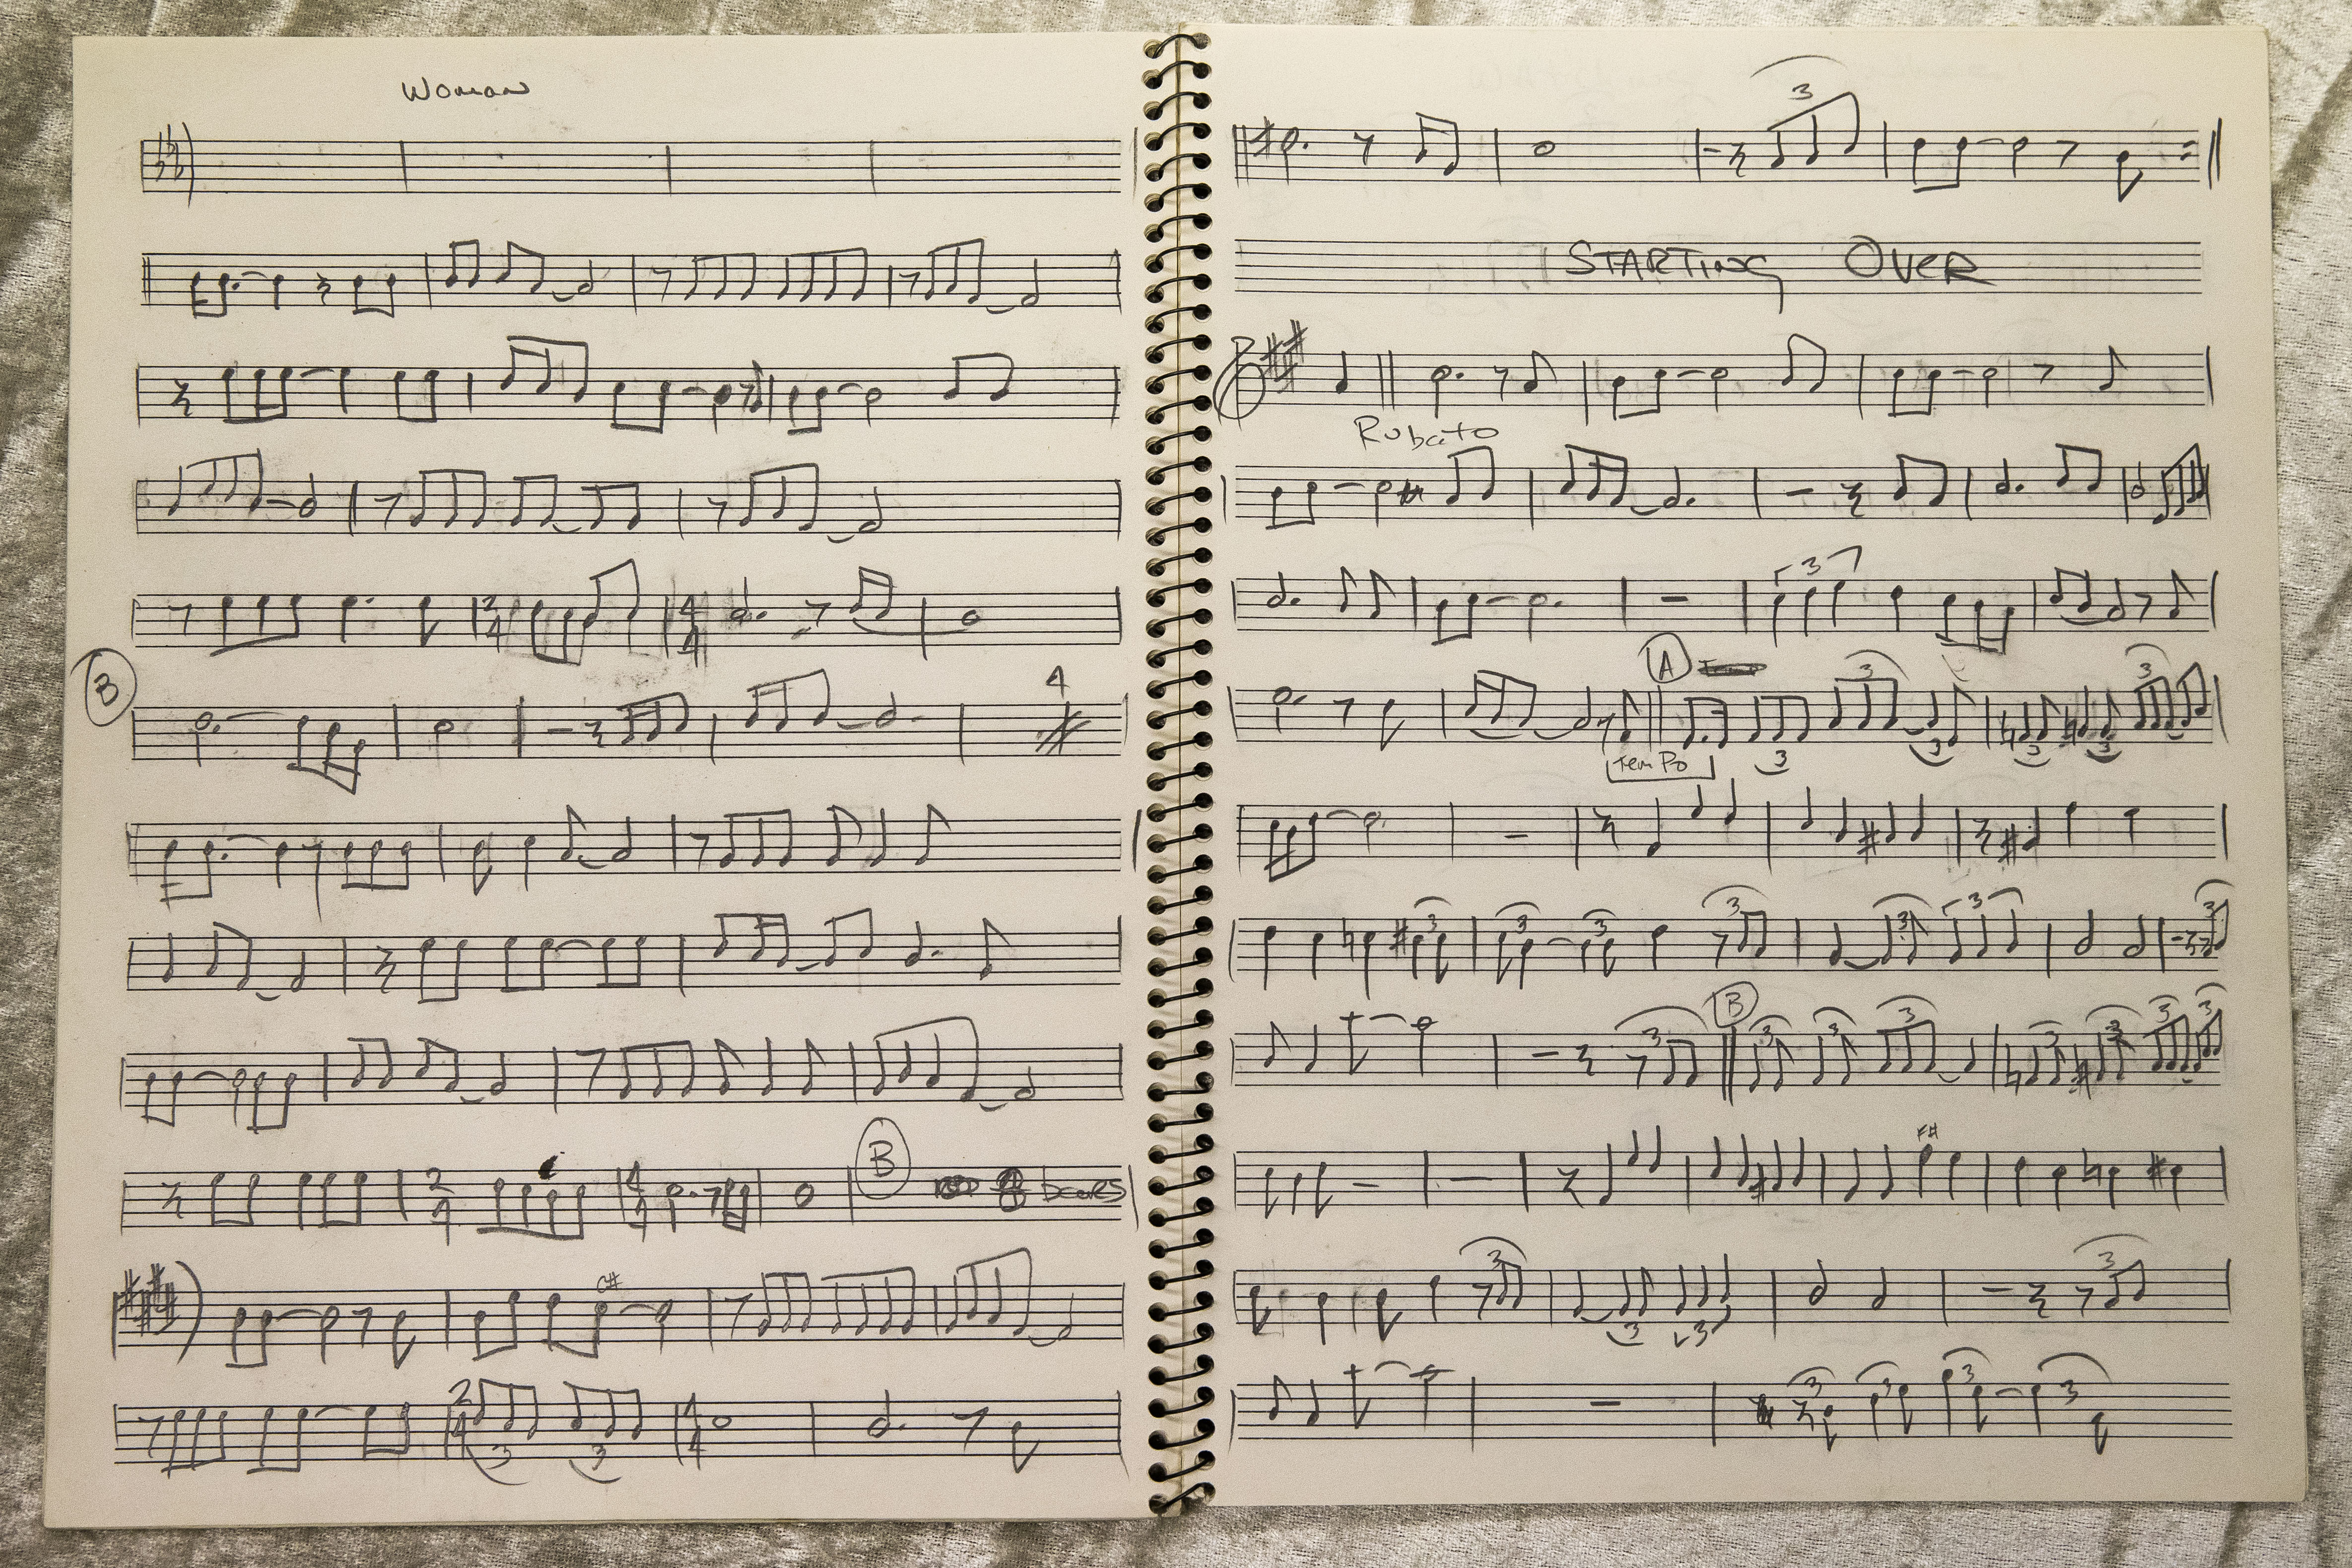 Woman
3
2
4
4
4
B
4
B
2
4
4
4
8 bars
G#
2
4
3
3
4
4
3
STARTING OVER
Rubato
3
A
3
3
3
3
3
3
Tempo
3
3
3
3
3
3
3
B
3
3
3
3
3
3
3
3
F#
3
3
3
3
3
3
3
3